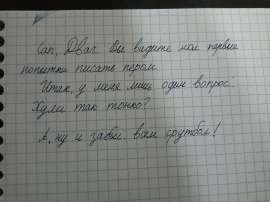 Сап, Двач. Вы видите мои первые
попытки писать пером.
Итак, у меня лишь один вопрос.
Хули так тонко?
А, ну и забыл: всем футбол!